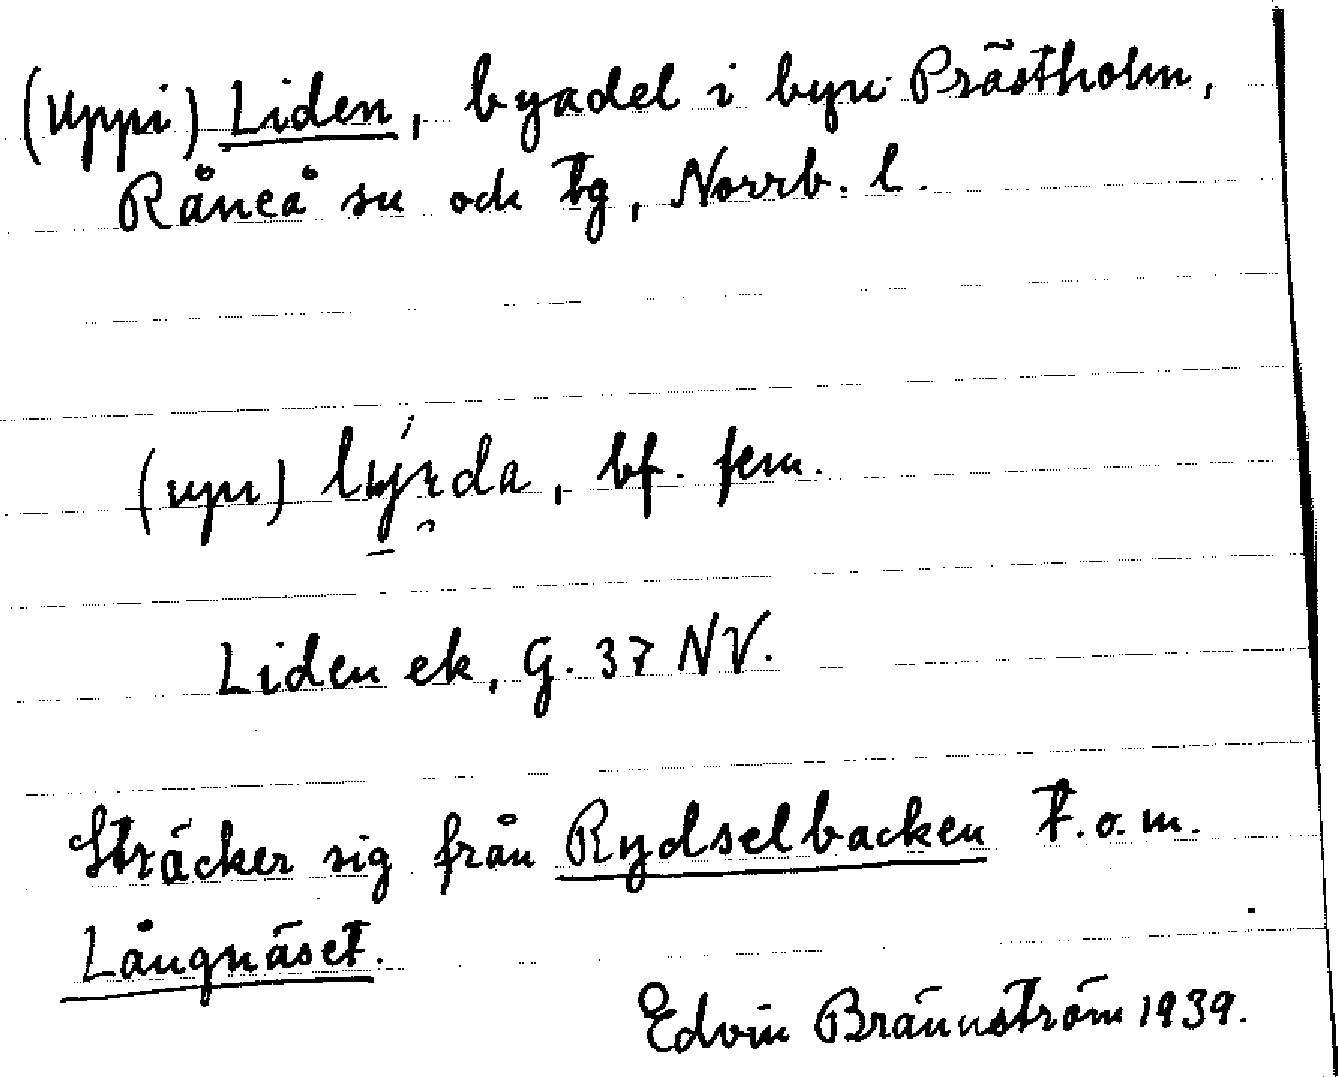 (Uppi) Liden, byadel i byn Prästholm,
Råneå sn och tg, Norrb. l.
(upn) bf. fem.
Liden ek, G. 37 NV.
Sträcker sig från Rydselbacken t.o.m.
Långnäset.
Edvin Brännström 1939.